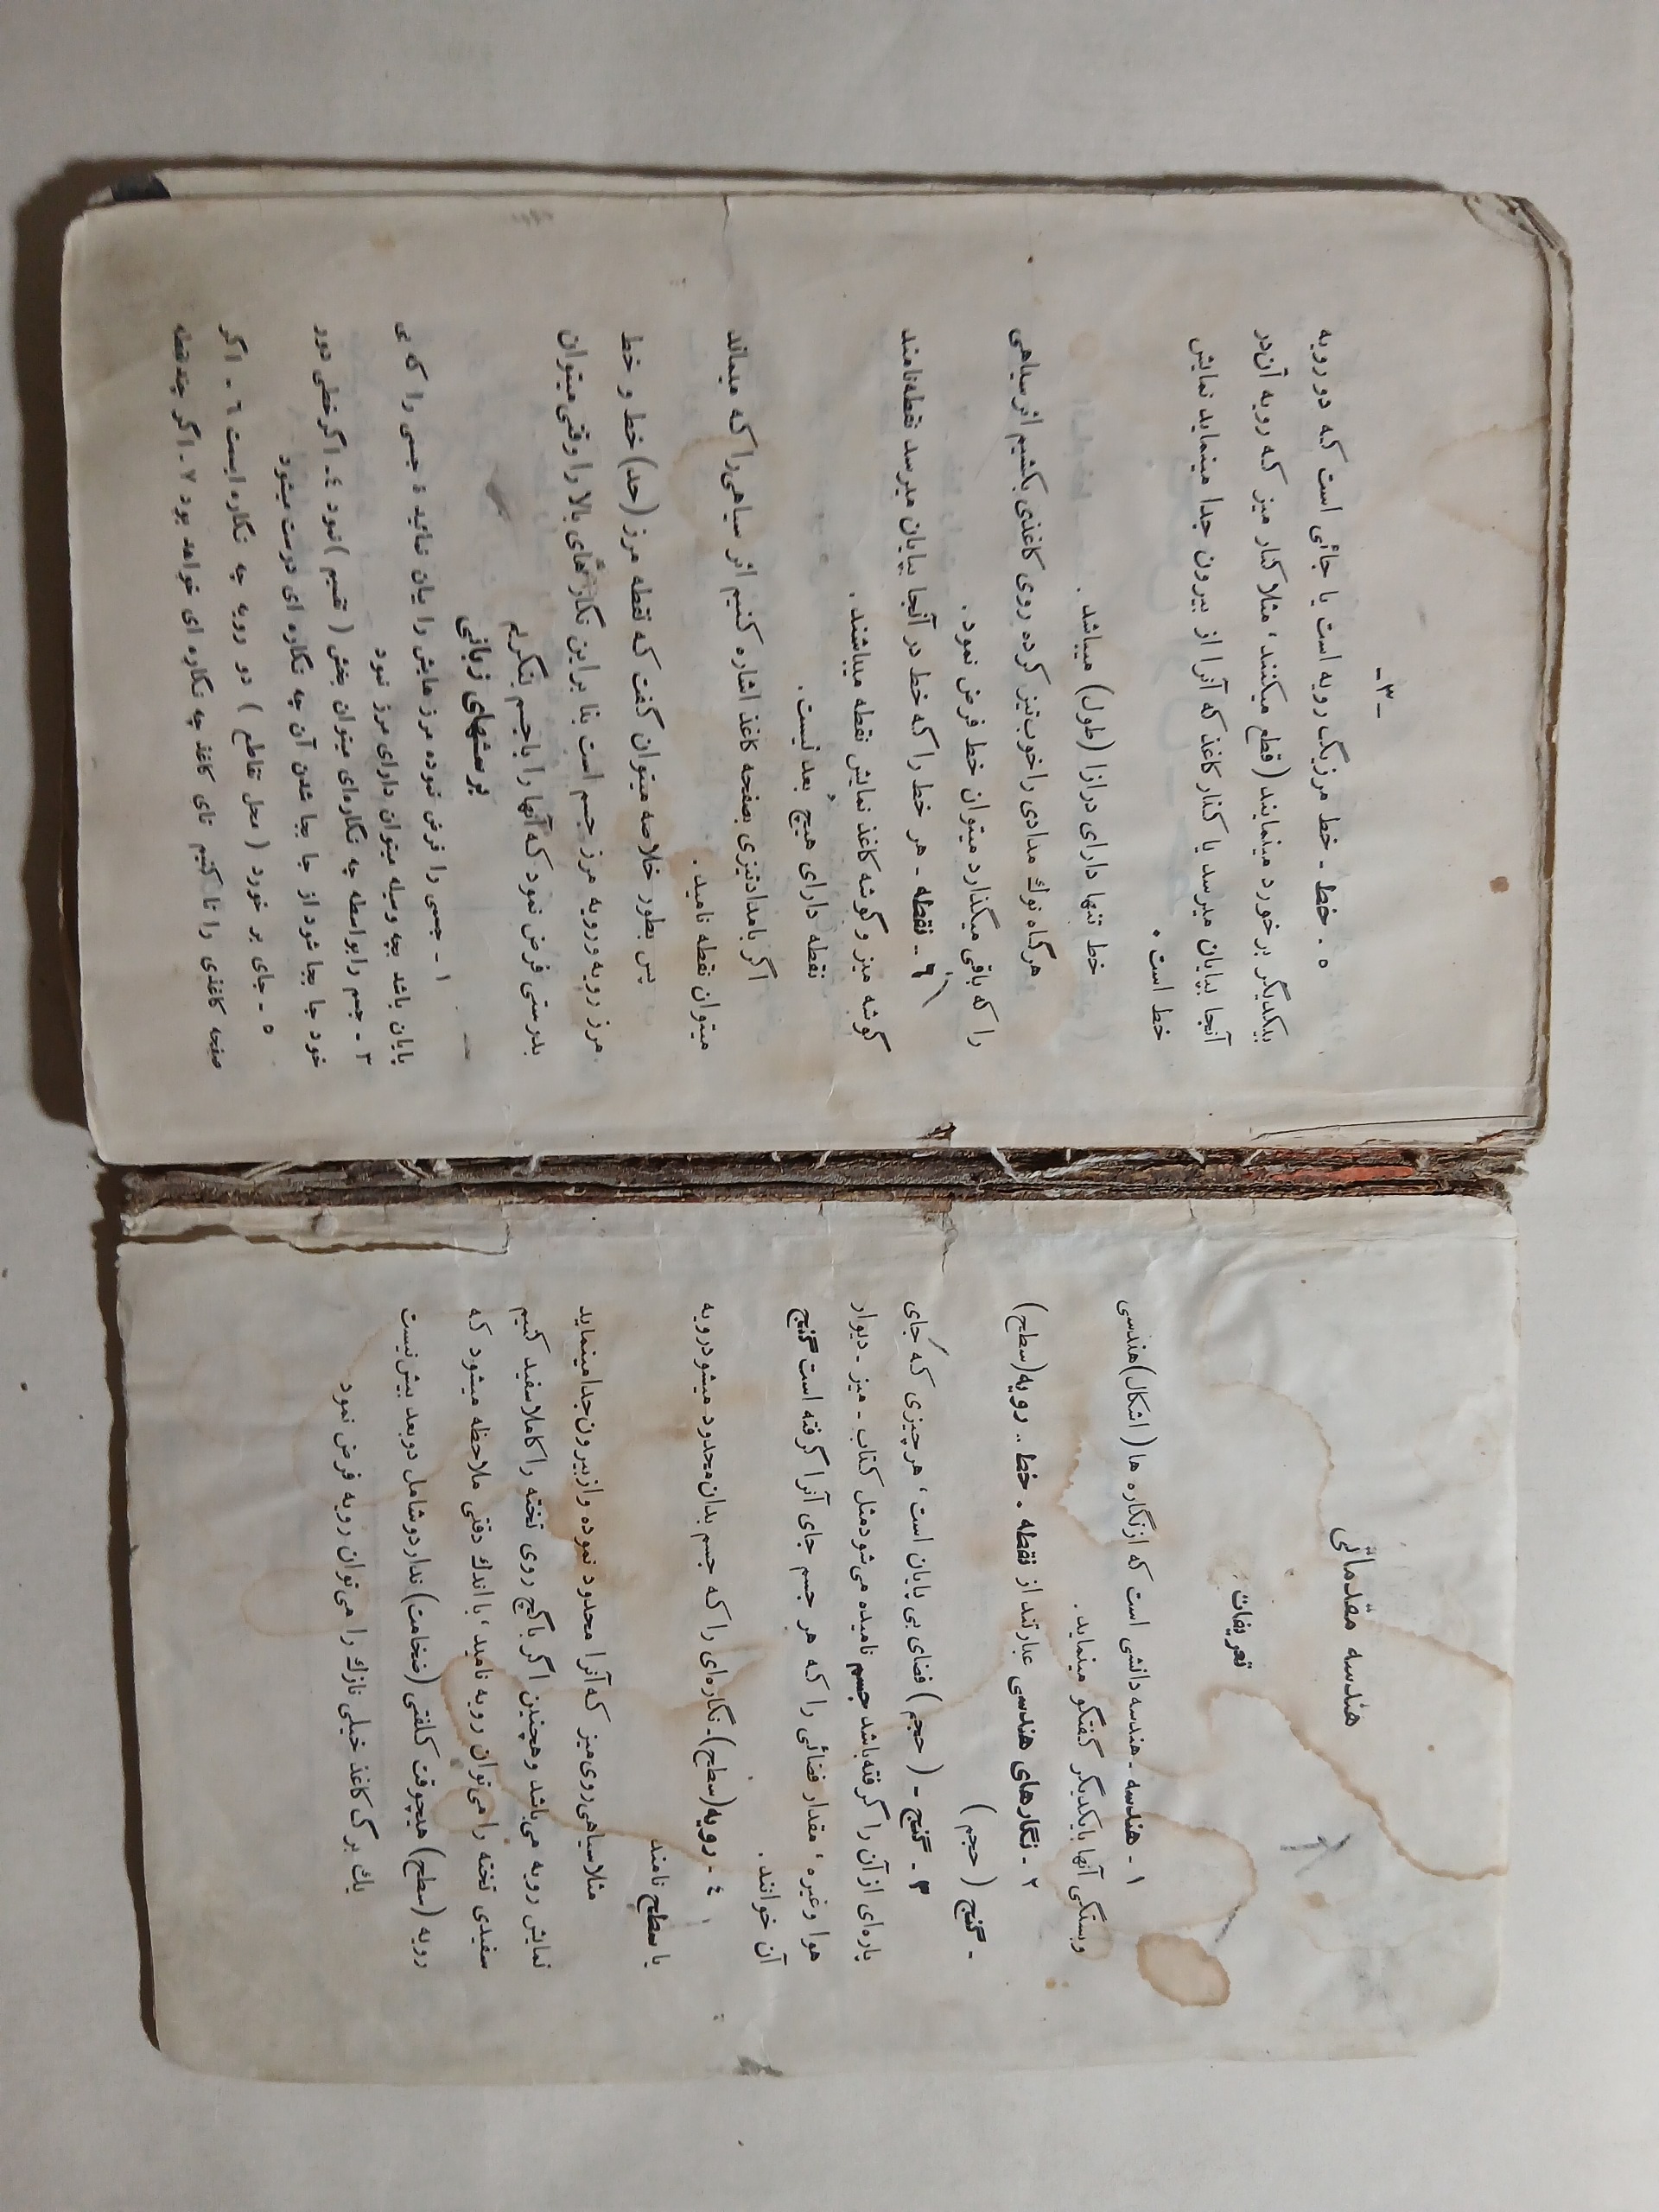 هندسه مقدماتی
تعریفات
۱ - هندسه - هندسه دانشی است که ازنگاره ها ( اشکال)هندسی
وبستگی آنها بایکدیگر گفتگو مینماید .
۲ - نگارهای هندسی عبارتند از نقطه . خط .. رویه(سطح)
- گنج ( حجم )
۳ - گنج - ( حجم ) فضای بی پایان است ، هرچیزی که جای
پاره‌ای از آن را گرفته‌باشد جسم نامیده می‌شود مثل کتاب - میز - دیوار
هوا وغیره ، مقدار فضائی را که هر جسم جای آنرا گرفته است گنج
آن خوانند .
٤ - رویه(سطح)- نگاره‌ای را که جسم بدان محدود میشودرویه
یا سطح نامند
مثلا سیاهی روی میز که آنرا محدود نموده و ازبیرون جدامینماید
نمایش رویه می‌باشد وهمچنین اگر باگچ روی تخته را کاملا سفید کنیم
سفیدی تخته را می‌توان رویه نامید ، با اندك دقتی ملاحظه میشود که
رویه (سطح) هیچوقت کلفتی (ضخامت) ندارد و شامل دوبعد بیش نیست
یك برگ کاغذ خیلی نازك را می‌توان رویه فرض نمود
-۳-
۵ . خط - خط مرز یک رویه است یا جائی است که دو رویه
بیکدیگر برخورد مینمایند (قطع میکنند ، مثلا کنار میز که رویه آن در
آنجا بپایان میرسد یا کنار کاغذ که آنرا از بیرون جدا مینماید نمایش
خط است .
خط تنها دارای درازا (طول) میباشد .
هرگاه نوك مدادی را خوب تیز کرده روی کاغذی بکشیم اثر سیاهی
را که باقی میگذارد میتوان خط فرض نمود .
٦ - نقطه - هر خط را که خط در آنجا بپایان میرسد نقطه نامند
گوشه میز و گوشه کاغذ نمایش نقطه میباشند .
نقطه دارای هیچ بعد نیست .
اگر بامداد تیزی بصفحه کاغذ اشاره کنیم اثر سیاهی را که میماند
میتوان نقطه نامید .
پس بطور خلاصه میتوان گفت که نقطه مرز (حد) خط و خط
مرز رویه و رویه مرز جسم است بنا براین نگارهای بالا را وقتی میتوان
بدرستی فرض نمود که آنها را باجسم بنگریم
پرسشهای زبانی
۱ - جسمی را فرض نموده مرزهایش را بیان نمائید ۲ جسمی را که بی
پایان باشد بچه وسیله میتوان دارای مرز نمود
۳ - جسم را بواسطه چه نگاره‌ای میتوان بخش ( تقسیم ) نمود ٤- اگر خطی دور
خود جا بجا شود از جا بجا شدن آن چه نگاره ای درست میشود
۵ - جای بر خورد ( محل تقاطع ) دو رویه چه نگاره ایست ٦ - اگر
صفحه کاغذی را تا کنیم تای کاغذ چه نگاره ای خواهد بود ۷ - اگر چند نقطه